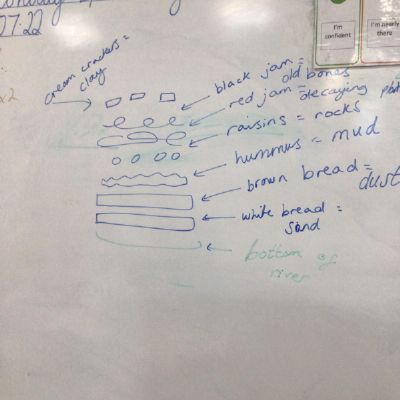 07.22
I'm confident
I'm nearly there
x2
cream crackers =
clay
black jam =
old bones
red jam =
decaying
raisins = rocks
hummus = mud
brown bread =
dust
white bread =
sand
bottom of
river